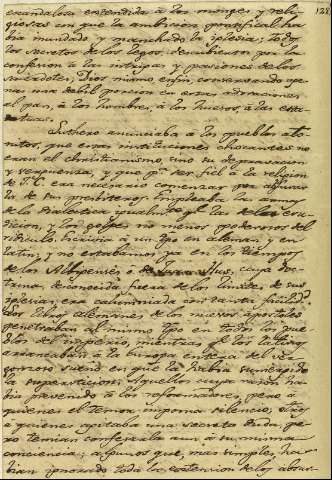 escandalosa estendida à los monges y reli-
giosas en que la ambicion pontifical ha-
bia inundado y manchado la iglesia; todos
los secretos de los legos, descubiertos por la
confesion à las intrigas y pasiones de los
sacerdotes; Dios mismo, enfin, conservando ape-
nas una debil porcion en esas adoraciones
el pan, à los hombres, à los huesos, à las esta-
tuas.
Luthero anunciaba à los pueblos ató-
nitos, que esas instituciones chocantes no
eran el christianismo, sino su depravacion
y verguenza, y que pª ser fiel à la religion
de J. C. era necesario comenzar por abjurar
la de sus presbiteros. Empleaba las armas
de la dialectica igualmte qe las de la eru-
dicion, y los golpes no menos poderosos del
ridiculo. Escrivia à un tpo en aleman y en
latin, y no estabamos ya en los tiempos
de los Albigenses ó de Juan Hus, cuya doc-
trina desconocida fuera de los limites de sus
iglesias, era calumniada con tanta facilidad.
Los libros alemanes de los nuevos apostoles
penetraban al mismo tpo en todos los pue-
blos del imperio, mientras qe los latinos
arrancaban à la Europa entera del ver-
gonzoso sueño en que la habia sumergido
la supersticion. Aquellos cuya razon ha-
bia prevenido à los reformadores, pero à
quienes el temor imponia silencio; Otros
à quienes agitaba una secreta duda, pe-
ro temian confesarla aun à su misma
conciencia; algunos que, mas simples, ha-
bian ignorado toda la extencion de los absur-